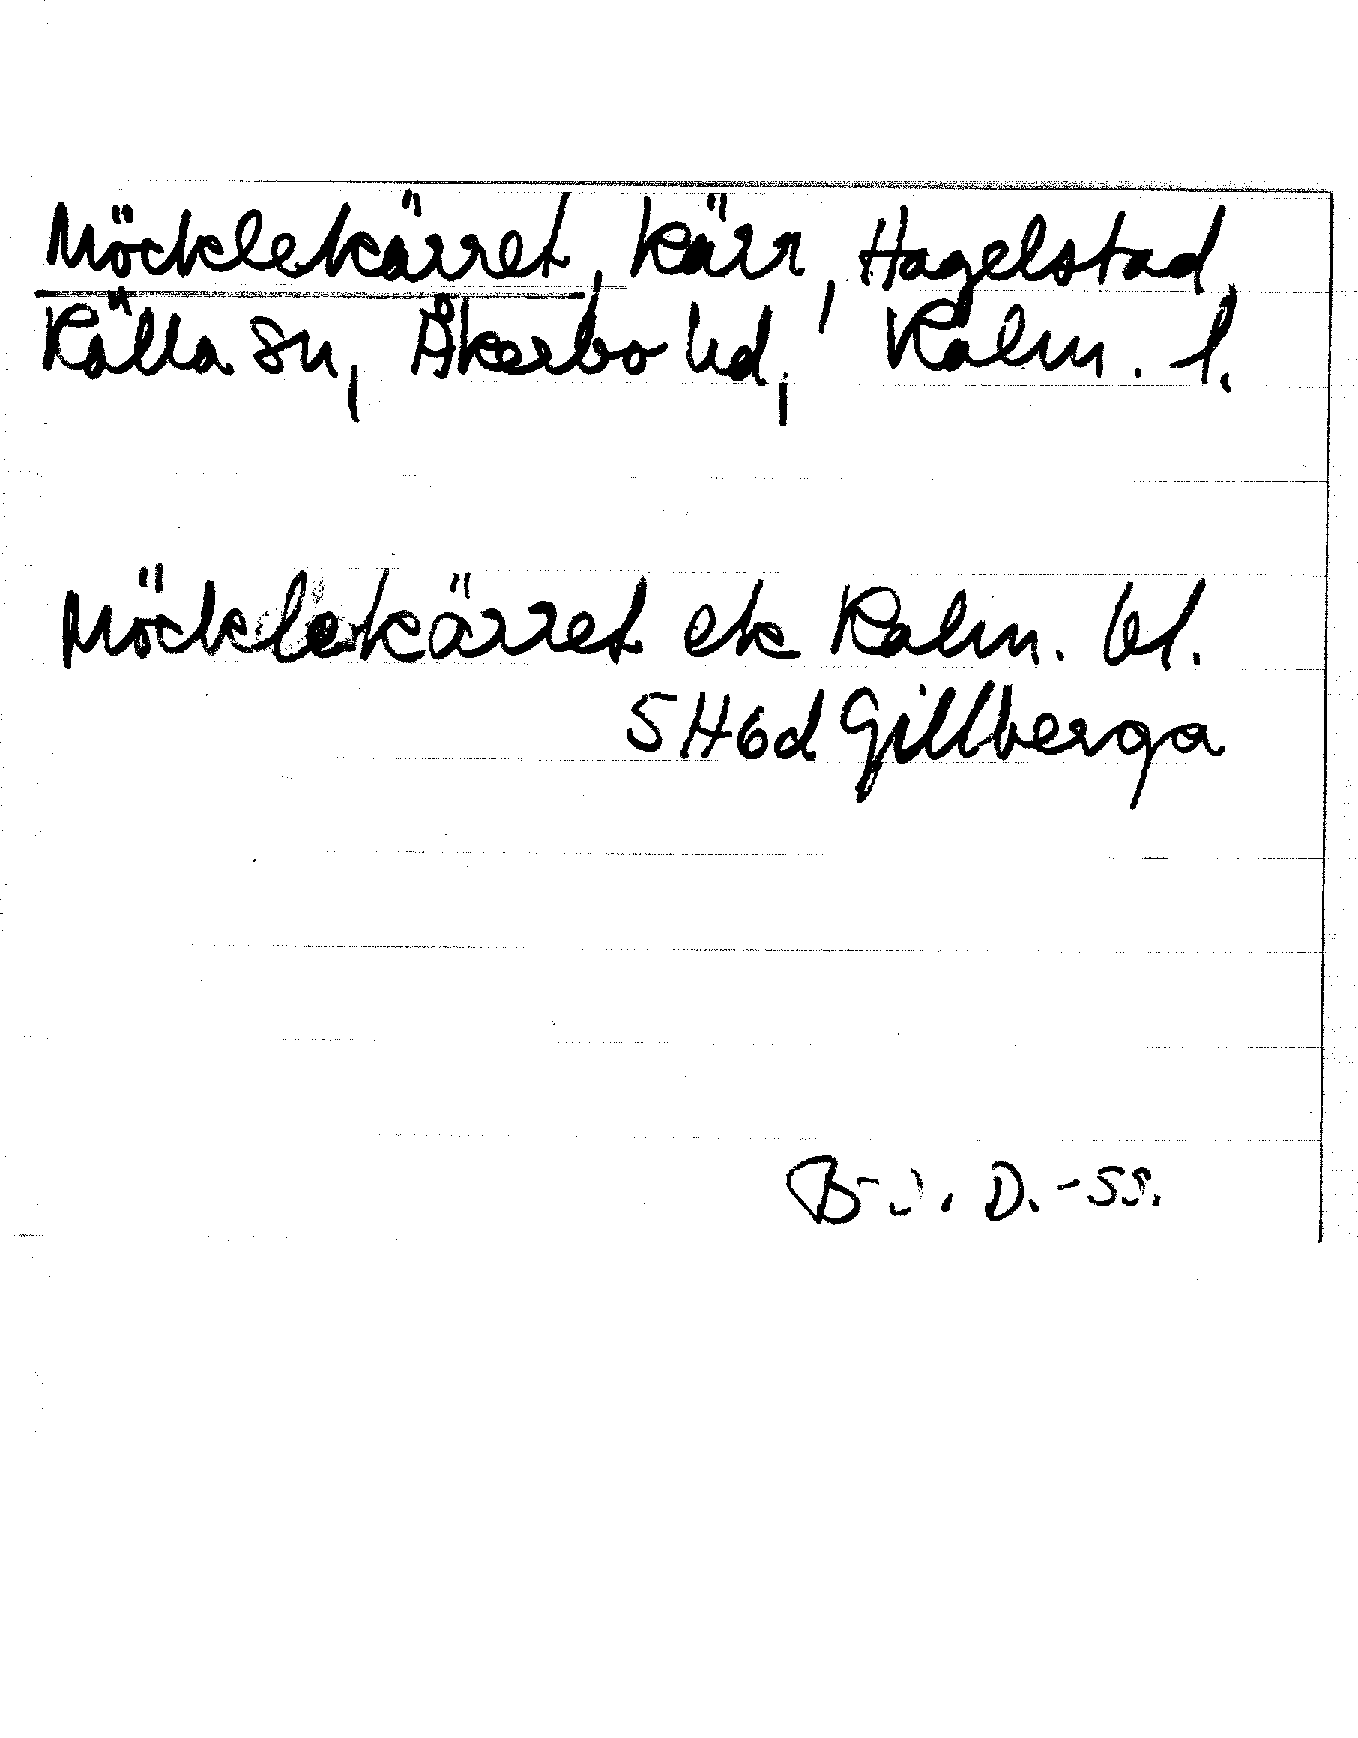 Möcklekärret, kärr, Hagelstad,
Källa sn, Åkerbo hd, Kalm. l.
Möcklekärret ek Kalm. bl.
5H6d Gillberga
B-J. D.-55.